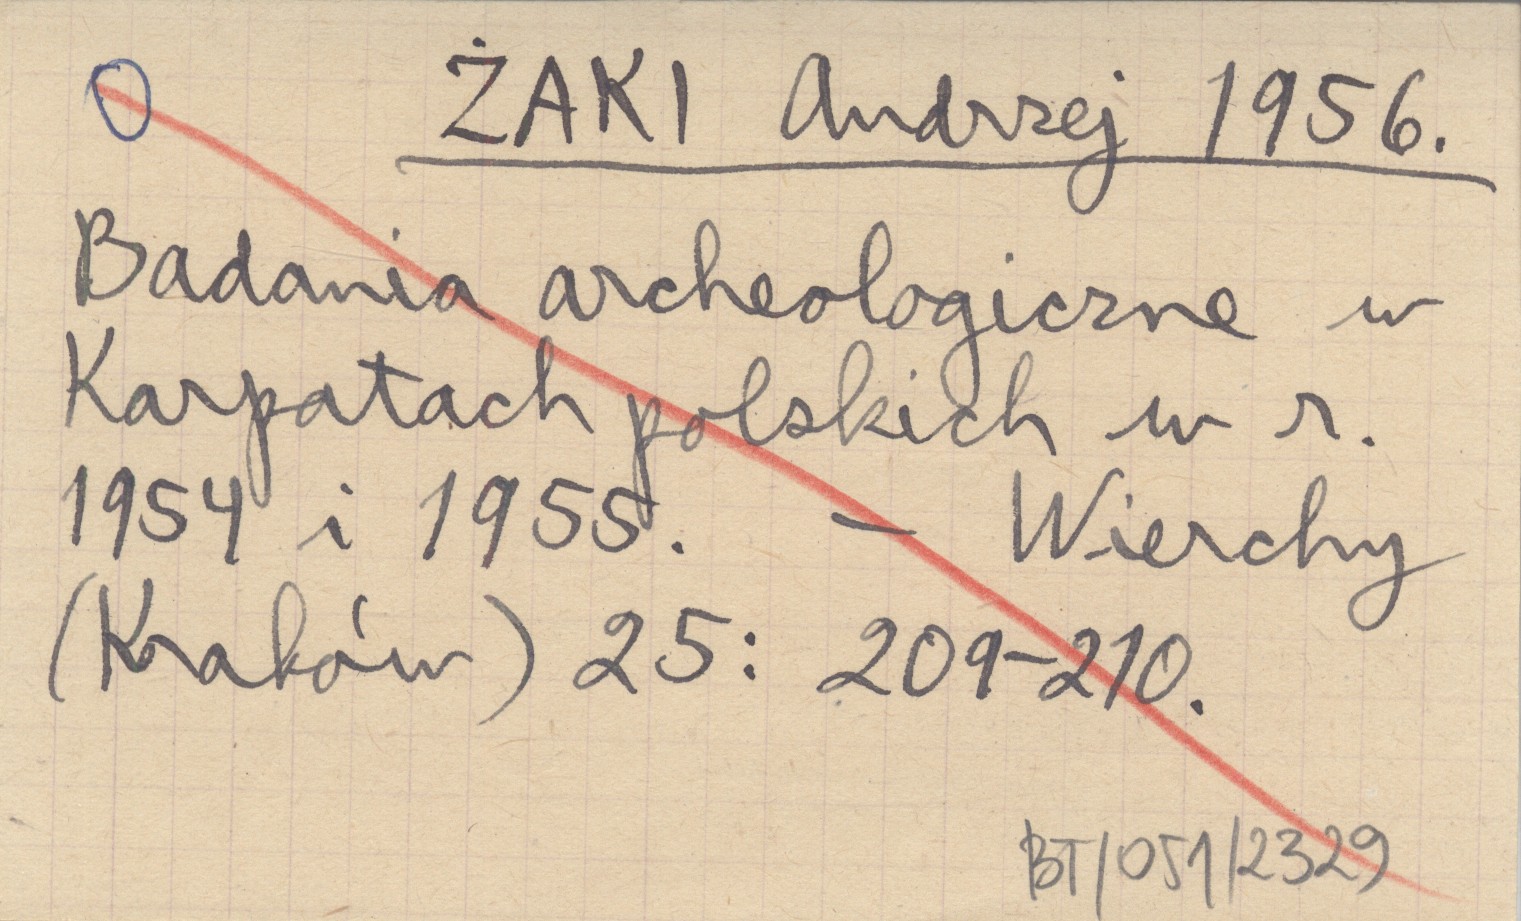 ŻAKI Andrzej 1956.
Badania archeologiczne w
Karpatach polskich w r.
1954 i 1955. – Wierchy
(Kraków) 25: 209-210.
BT/051/2329